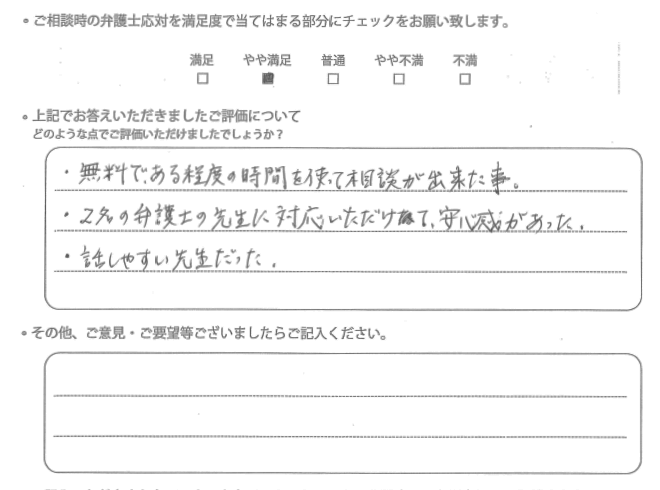 • ご相談時の弁護士応対を満足度で当てはまる部分にチェックをお願い致します。
満足 やや満足 普通 やや不満 不満
□ ■ □ □ □
• 上記でお答えいただきましたご評価について
どのような点でご評価いただけましたでしょうか？
・無料である程度の時間を使って相談が出来た事。
・2名の弁護士の先生に対応いただけて、安心感があった.
・話しやすい先生だった.
• その他、ご意見・ご要望等ございましたらご記入ください。